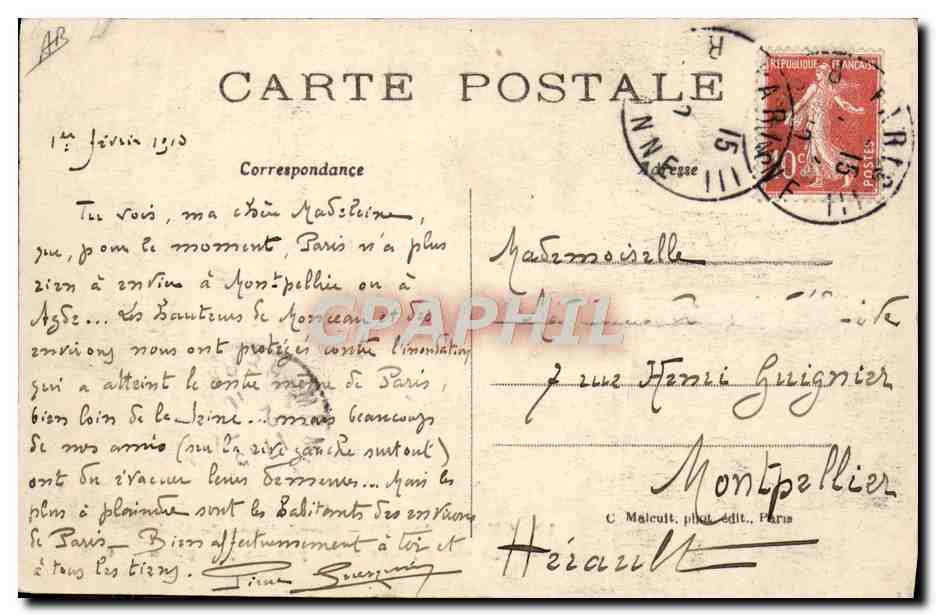 AB
CARTE POSTALE
RÉPUBLIQUE FRANÇAISE
10c
POSTES
1er février 1910
Correspondance
Adresse
Tu vois, ma chère Madeleine,
que, pour le moment, Paris n'a plus
rien à envier à Montpellier ou à
Agde... Les hauteurs de Monceau et des
environs nous ont protégés contre l'inondation
qui a atteint le centre même de Paris,
bien loin de la Seine... mais beaucoup
de nos amis (sur la rive gauche surtout)
ont du évacuer leurs demeures... Mais les
plus à plaindre sont les habitants des environs
de Paris. Bien affectueusement à toi et
à tous les tiens. Pierre
Mademoiselle
7 rue Henri Guignier
Montpellier
Hérault
C Malcuit, phot. édit., Paris
CPAPHIL